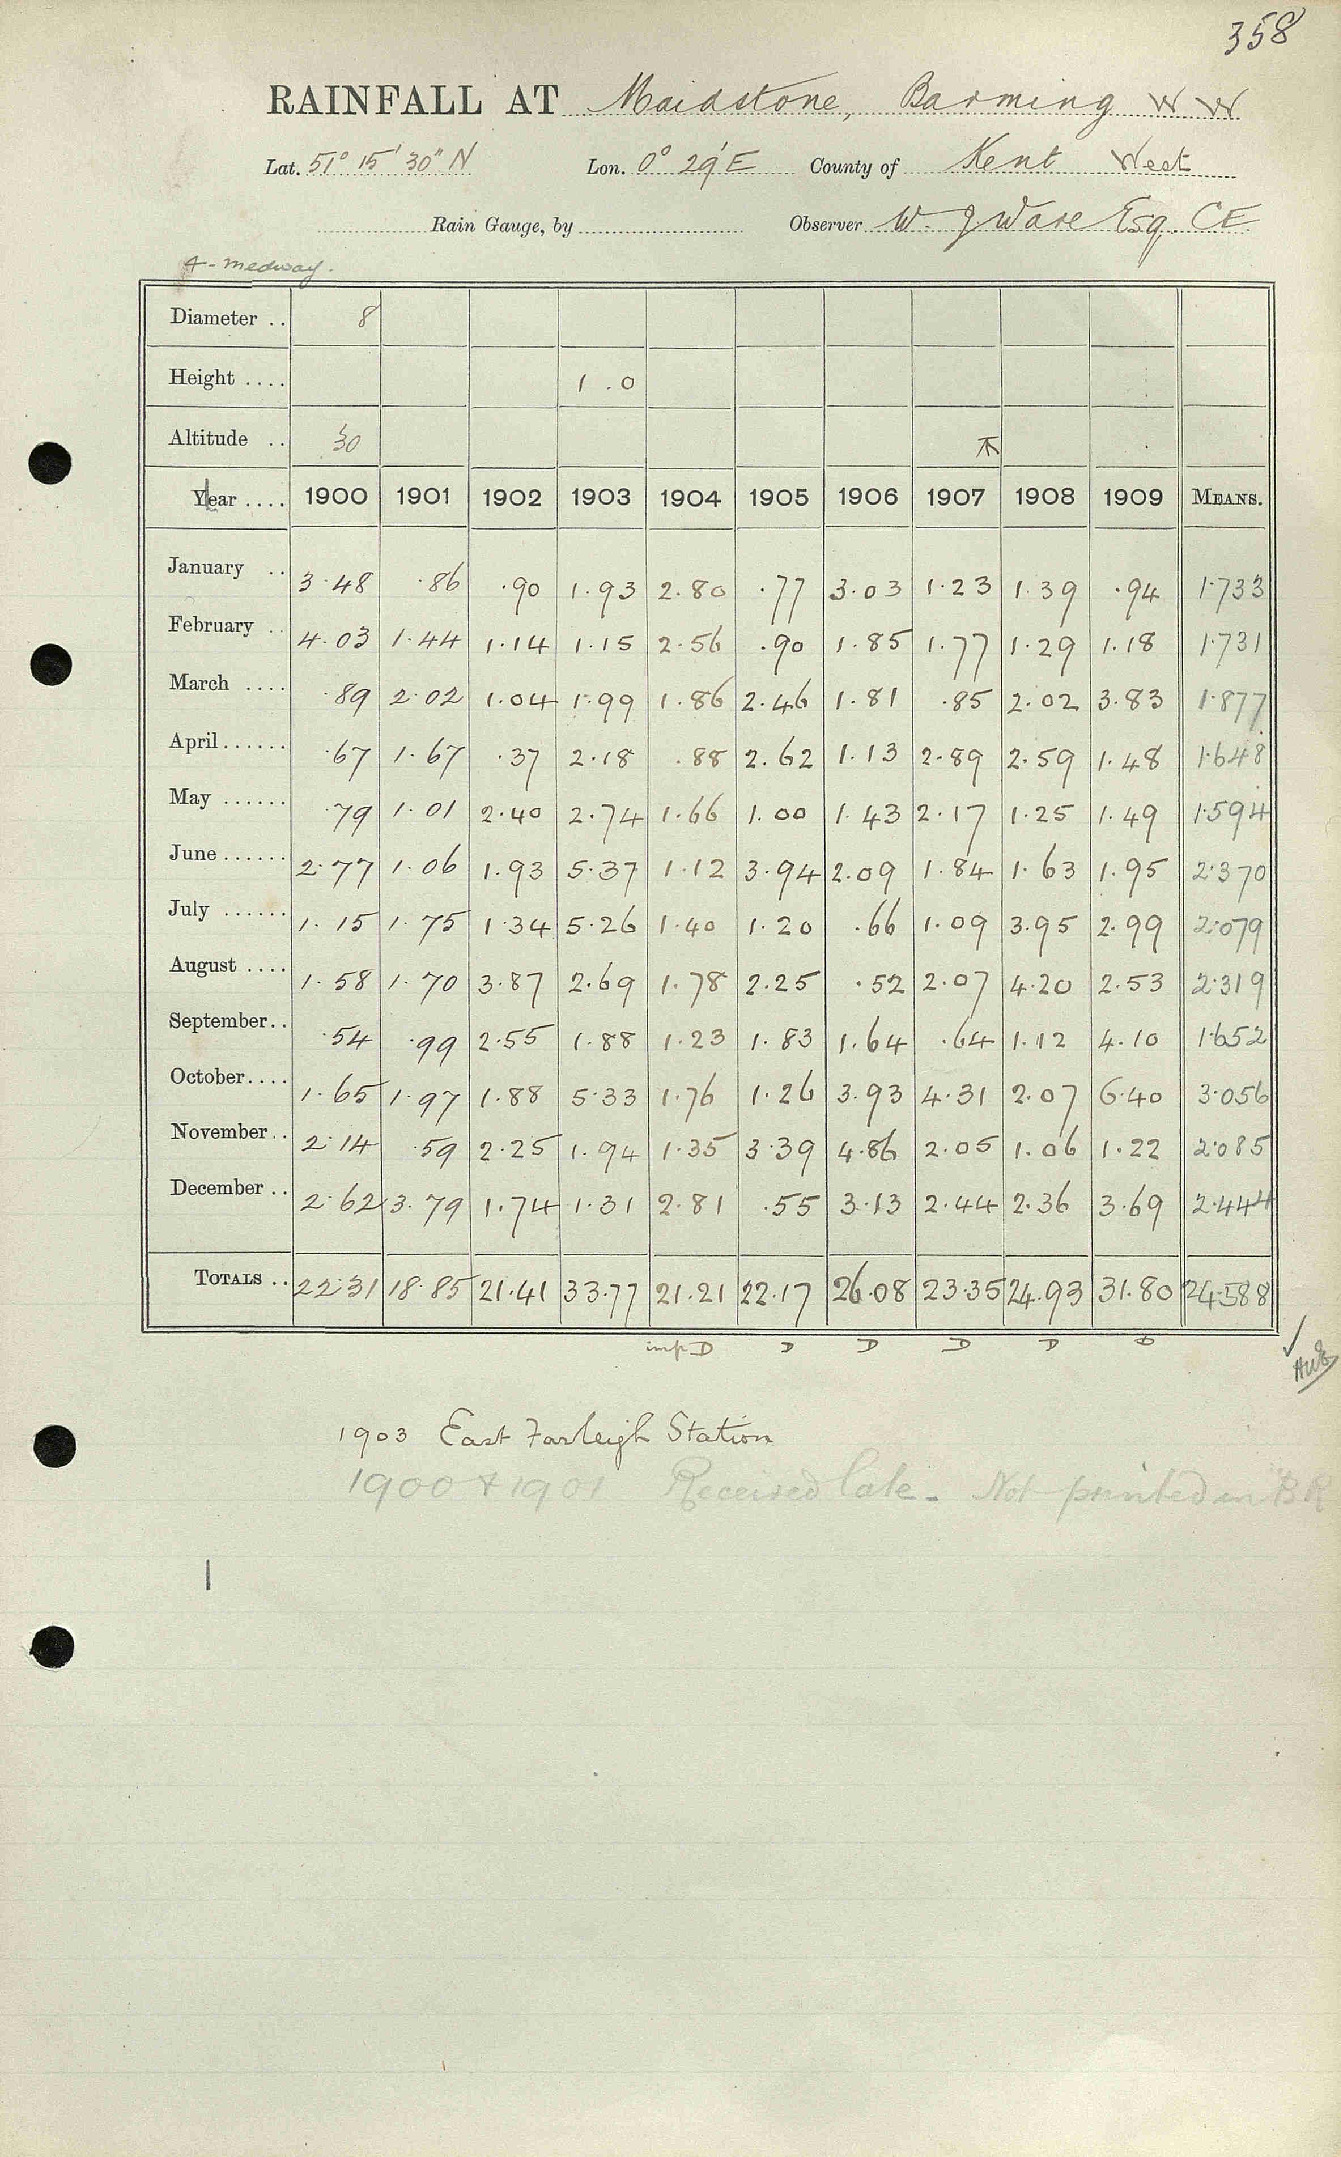 358
RAINFALL AT Maidstone, Barming W W
Lat. 51° 15' 30" N Lon. 0° 29' E County of Kent West
Rain Gauge, by Observer W. J. Ware Esq. CE
4 - Medway.
Diameter .. 8
Height .... 1.0
Altitude .. 30
Year .... 1900 1901 1902 1903 1904 1905 1906 1907 1908 1909 MEANS.
January .. 3.48 .86 .90 1.93 2.80 .77 3.03 1.23 1.39 .94 1.733
February .. 4.03 1.44 1.14 1.15 2.56 .90 1.85 1.77 1.29 1.18 1.731
March .... .89 2.02 1.04 1.99 1.86 2.46 1.81 .85 2.02 3.83 1.877
April...... .67 1.67 .37 2.18 .88 2.62 1.13 2.89 2.59 1.48 1.648
May ...... .79 1.01 2.40 2.74 1.66 1.00 1.43 2.17 1.25 1.49 1.594
June...... 2.77 1.06 1.93 5.37 1.12 3.94 2.09 1.84 1.63 1.95 2.370
July ...... 1.15 1.75 1.34 5.26 1.40 1.20 .66 1.09 3.95 2.99 2.079
August .... 1.58 1.70 3.87 2.69 1.78 2.25 .52 2.07 4.20 2.53 2.319
September.. .54 .99 2.55 1.88 1.23 1.83 1.64 .64 1.12 4.10 1.652
October.... 1.65 1.97 1.88 5.33 1.76 1.26 3.93 4.31 2.07 6.40 3.056
November.. 2.14 .59 2.25 1.94 1.35 3.39 4.86 2.05 1.06 1.22 2.085
December .. 2.62 3.79 1.74 1.31 2.81 .55 3.13 2.44 2.36 3.69 2.444
TOTALS .. 22.31 18.85 21.41 33.77 21.21 22.17 26.08 23.35 24.93 31.80 24.588
imp D D D D D D
1903 East Farleigh Station
1900 & 1901 Received late - Not printed in BR